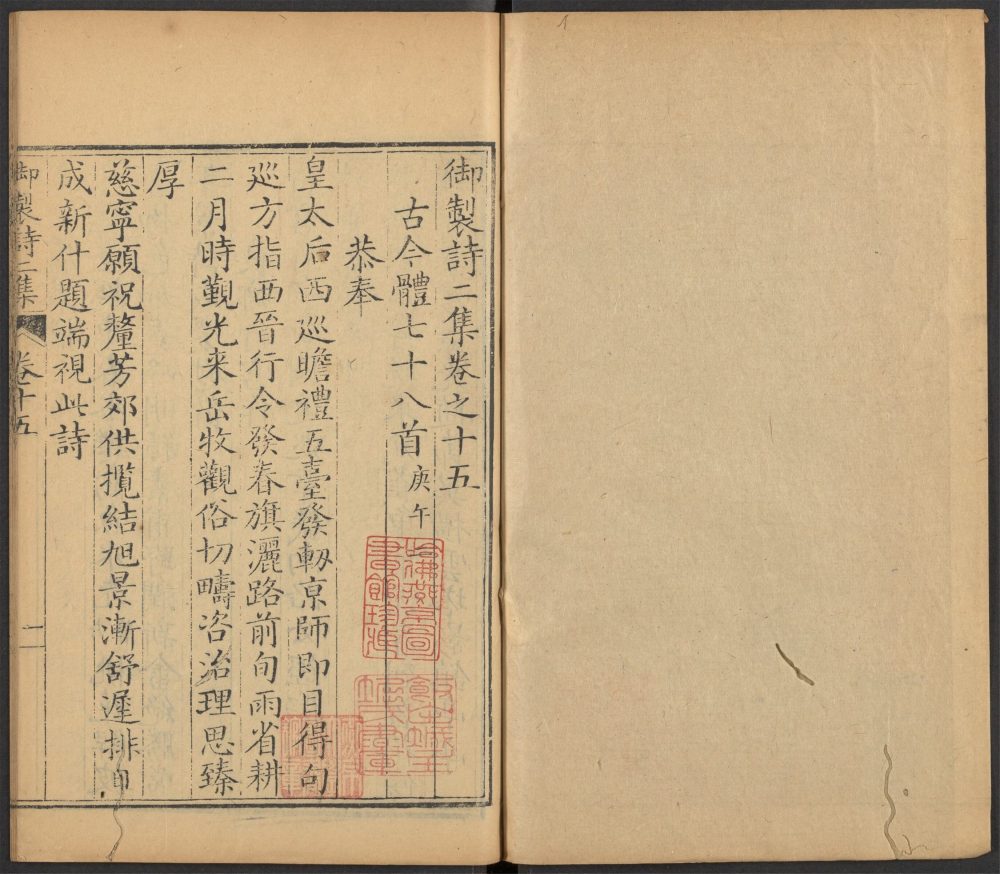 御製詩二集卷之十五
古今體七十八首 庚午
恭奉
皇太后西巡瞻禮五臺發軔京師即目得句
廵方指西晉行令發春旗灑路前旬雨省耕
二月時覲光来岳牧觀俗切疇咨治理思臻
厚
慈寧願祝釐芳郊供攬結旭景漸舒遲排日
成新什題端視此詩
御製詩二集 卷十五 一
哈佛燕京圖
書館珍藏